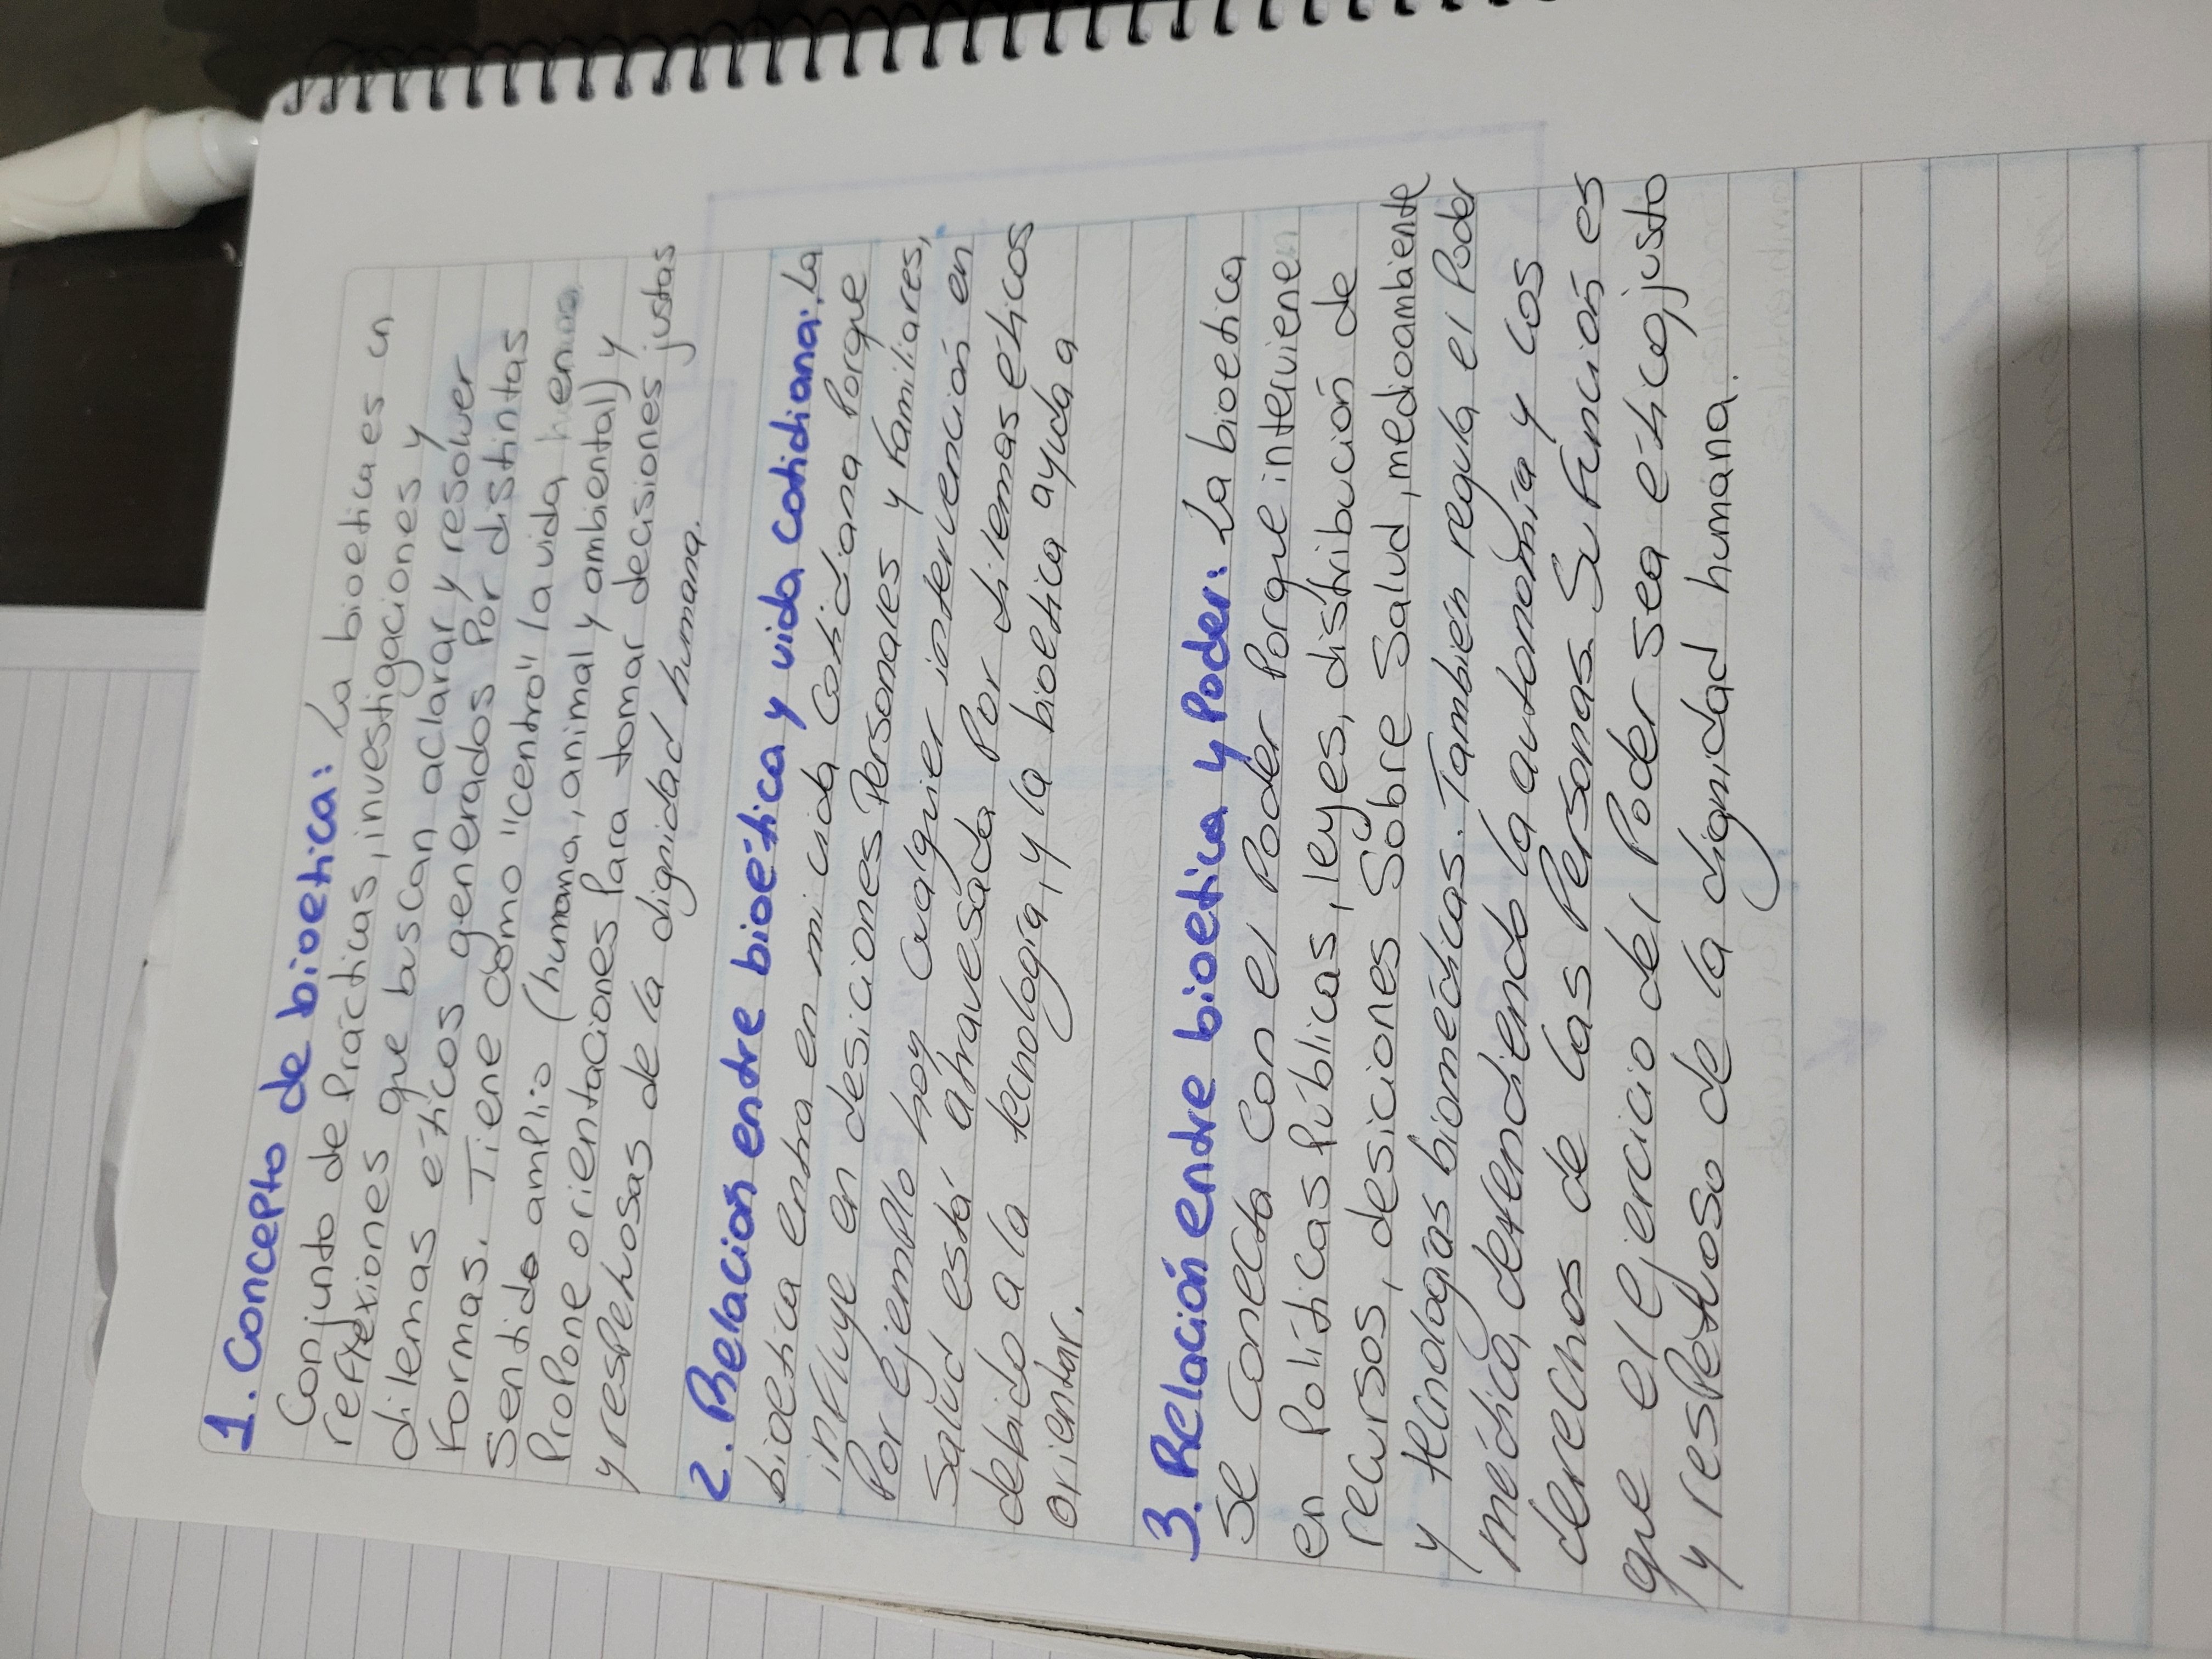 1. Concepto de bioetica: La bioetica es un
Conjunto de Prácticas, investigaciones y
reflexiones que buscan aclarar y resolver
dilemas eticos generados Por distintas
Formas. Tiene como "centro" la vida, en
Sentido amplio (humana, animal y ambiental) y
Propone orientaciones Para tomar decisiones justas
y respetuosas de la dignidad humana.
2. Relación entre bioética y vida cotidiana: La
bioetica entra en mi vida Cotidiana Porque
influye en desiciones Personales y Familiares,
Por ejemplo hoy Cualquier intervención en
Salud está atravesada Por dilemas eticos
debido a la tecnología, y la bioetica ayuda a
orientar.
3. Relación entre bioetica y Poder: La bioetica
se conecta con el Poder Porque interviene
en Políticas Públicas, leyes, distribución de
recursos, desiciones Sobre Salud, medioambiente
y tecnologías biomedicas. También regula el Poder
medico, defendiendo la autonomía y los
derechos de las Personas. Su Función es
que el ejercicio del Poder sea etico, justo
y respetuoso de la dignidad humana.